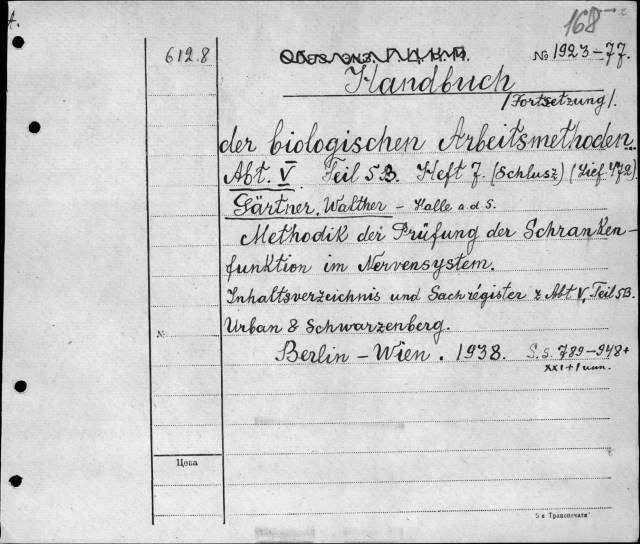 168
612.8
№ 1923-77.
Handbuch
/Fortsetzung/.
der biologischen Arbeitsmethoden.
Abt. V Teil 5B. Heft 7. (Schlusz) (Lief 472).
Gärtner, Walther - Halle a.d S.
Methodik der Prüfung der Schranken-
funktion im Nervensystem.
Inhaltsverzeichnis und Sachrégister z Abt V, Teil 5B.
Urban & Schwarzenberg.
№
Berlin - Wien . 1938. S.s. 789-948+
XXI+1 unn.
Цена
5-я Транспечати